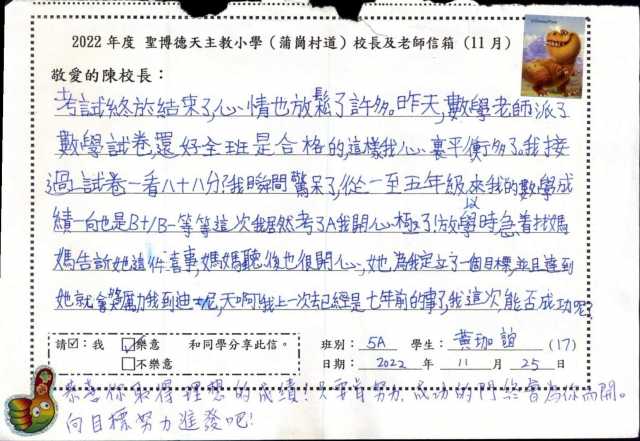 2022 年度 聖博德天主教小學（蒲崗村道）校長及老師信箱（11月）
敬愛的陳校長：
考試終於結束了,心情也放鬆了許多。昨天,數學老師派了
數學試卷,還好全班是合格的,這樣我心裏平衡多了。我接
過試卷一看八十八分?我瞬間驚呆了,從一至五年級以來我的數學成
績一向也是B+/B-等等這次我居然考了A我開心極了!放學時,急着找媽
媽告訴她這件喜事,媽媽聽後也很開心,她為我定立了一個目標,並且達到
她就會獎勵我到迪士尼,天啊!我上一次去已經是七年前的事了,我這次能否成功呢?
請☑：我 ☑樂意 和同學分享此信。 班別：5A 學生：黃珈誼 (17)
□不樂意 日期：2022 年 11 月 25 日
恭喜你取得理想的成績!只要肯努力,成功的門終會為你而開。
向目標努力進發吧!